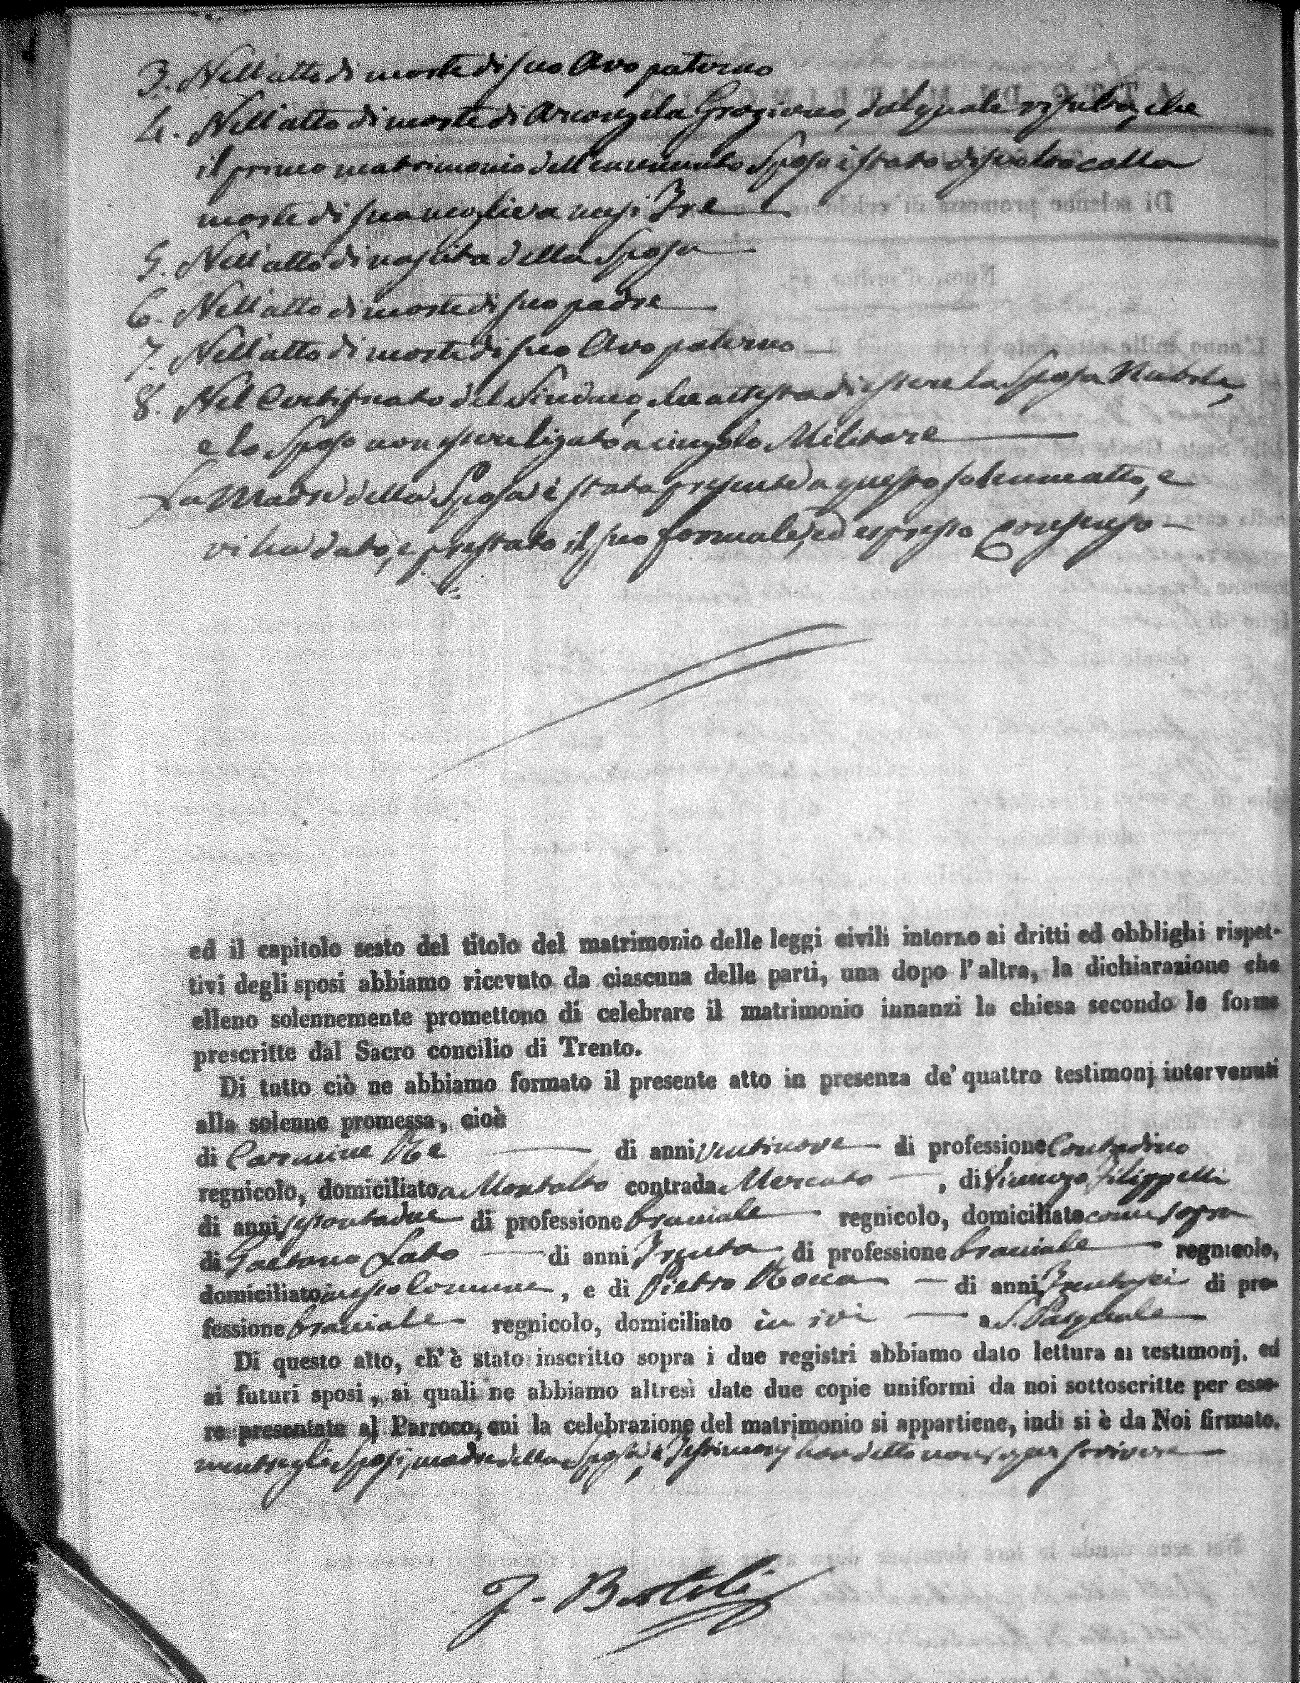 3. Nell'atto di morte di suo Avo paterno
4. Nell'atto di morte di Arcangela Graziano, dal quale risulta, che
il primo matrimonio dell'enunciato Sposo è stato disciolto colla
morte di sua moglie a mesi Tre
5. Nell'atto di nascita della Sposa
6. Nell'atto di morte di suo padre
7. Nell'atto di morte di suo Avo paterno
8. Nel Certificato del Sindaco, che attesta di essere la Sposa Nubile,
e lo Sposo non essere ligato a cingolo Militare
La Madre della Sposa è stata presente a questo solenne atto, e
vi ha dato, e prestato il suo formale, ed espresso Consenso
ed il capitolo sesto del titolo del matrimonio delle leggi civili intorno ai dritti ed obblighi rispet-
tivi degli sposi abbiamo ricevuto da ciascuna delle parti, una dopo l'altra, la dichiarazione che
elleno solennemente promettono di celebrare il matrimonio innanzi la chiesa secondo le forme
prescritte dal Sacro concilio di Trento.
Di tutto ciò ne abbiamo formato il presente atto in presenza de' quattro testimonj intervenuti
alla solenne promessa, cioè
di Carmine di anni ventinove di professione Contadino
regnicolo, domiciliato a Montalto contrada Mercato, di Vincenzo Filippelli
di anni sessantadue di professione bracciale regnicolo, domiciliato come sopra
di Gaetano Lato di anni Trenta di professione bracciale regnicolo,
domiciliato in esso Comune, e di Pietro Rocca di anni Trentasei di pro-
fessione bracciale regnicolo, domiciliato in ivi a S. Pasquale
Di questo atto, ch'è stato inscritto sopra i due registri abbiamo dato lettura ai testimonj, ed
ai futuri sposi, ai quali ne abbiamo altresì date due copie uniformi da noi sottoscritte per esse-
re presentate al Parroco, cui la celebrazione del matrimonio si appartiene, indi si è da Noi firmato,
mentre gli Sposi, madre della Sposa, e Testimonj han detto non saper scrivere